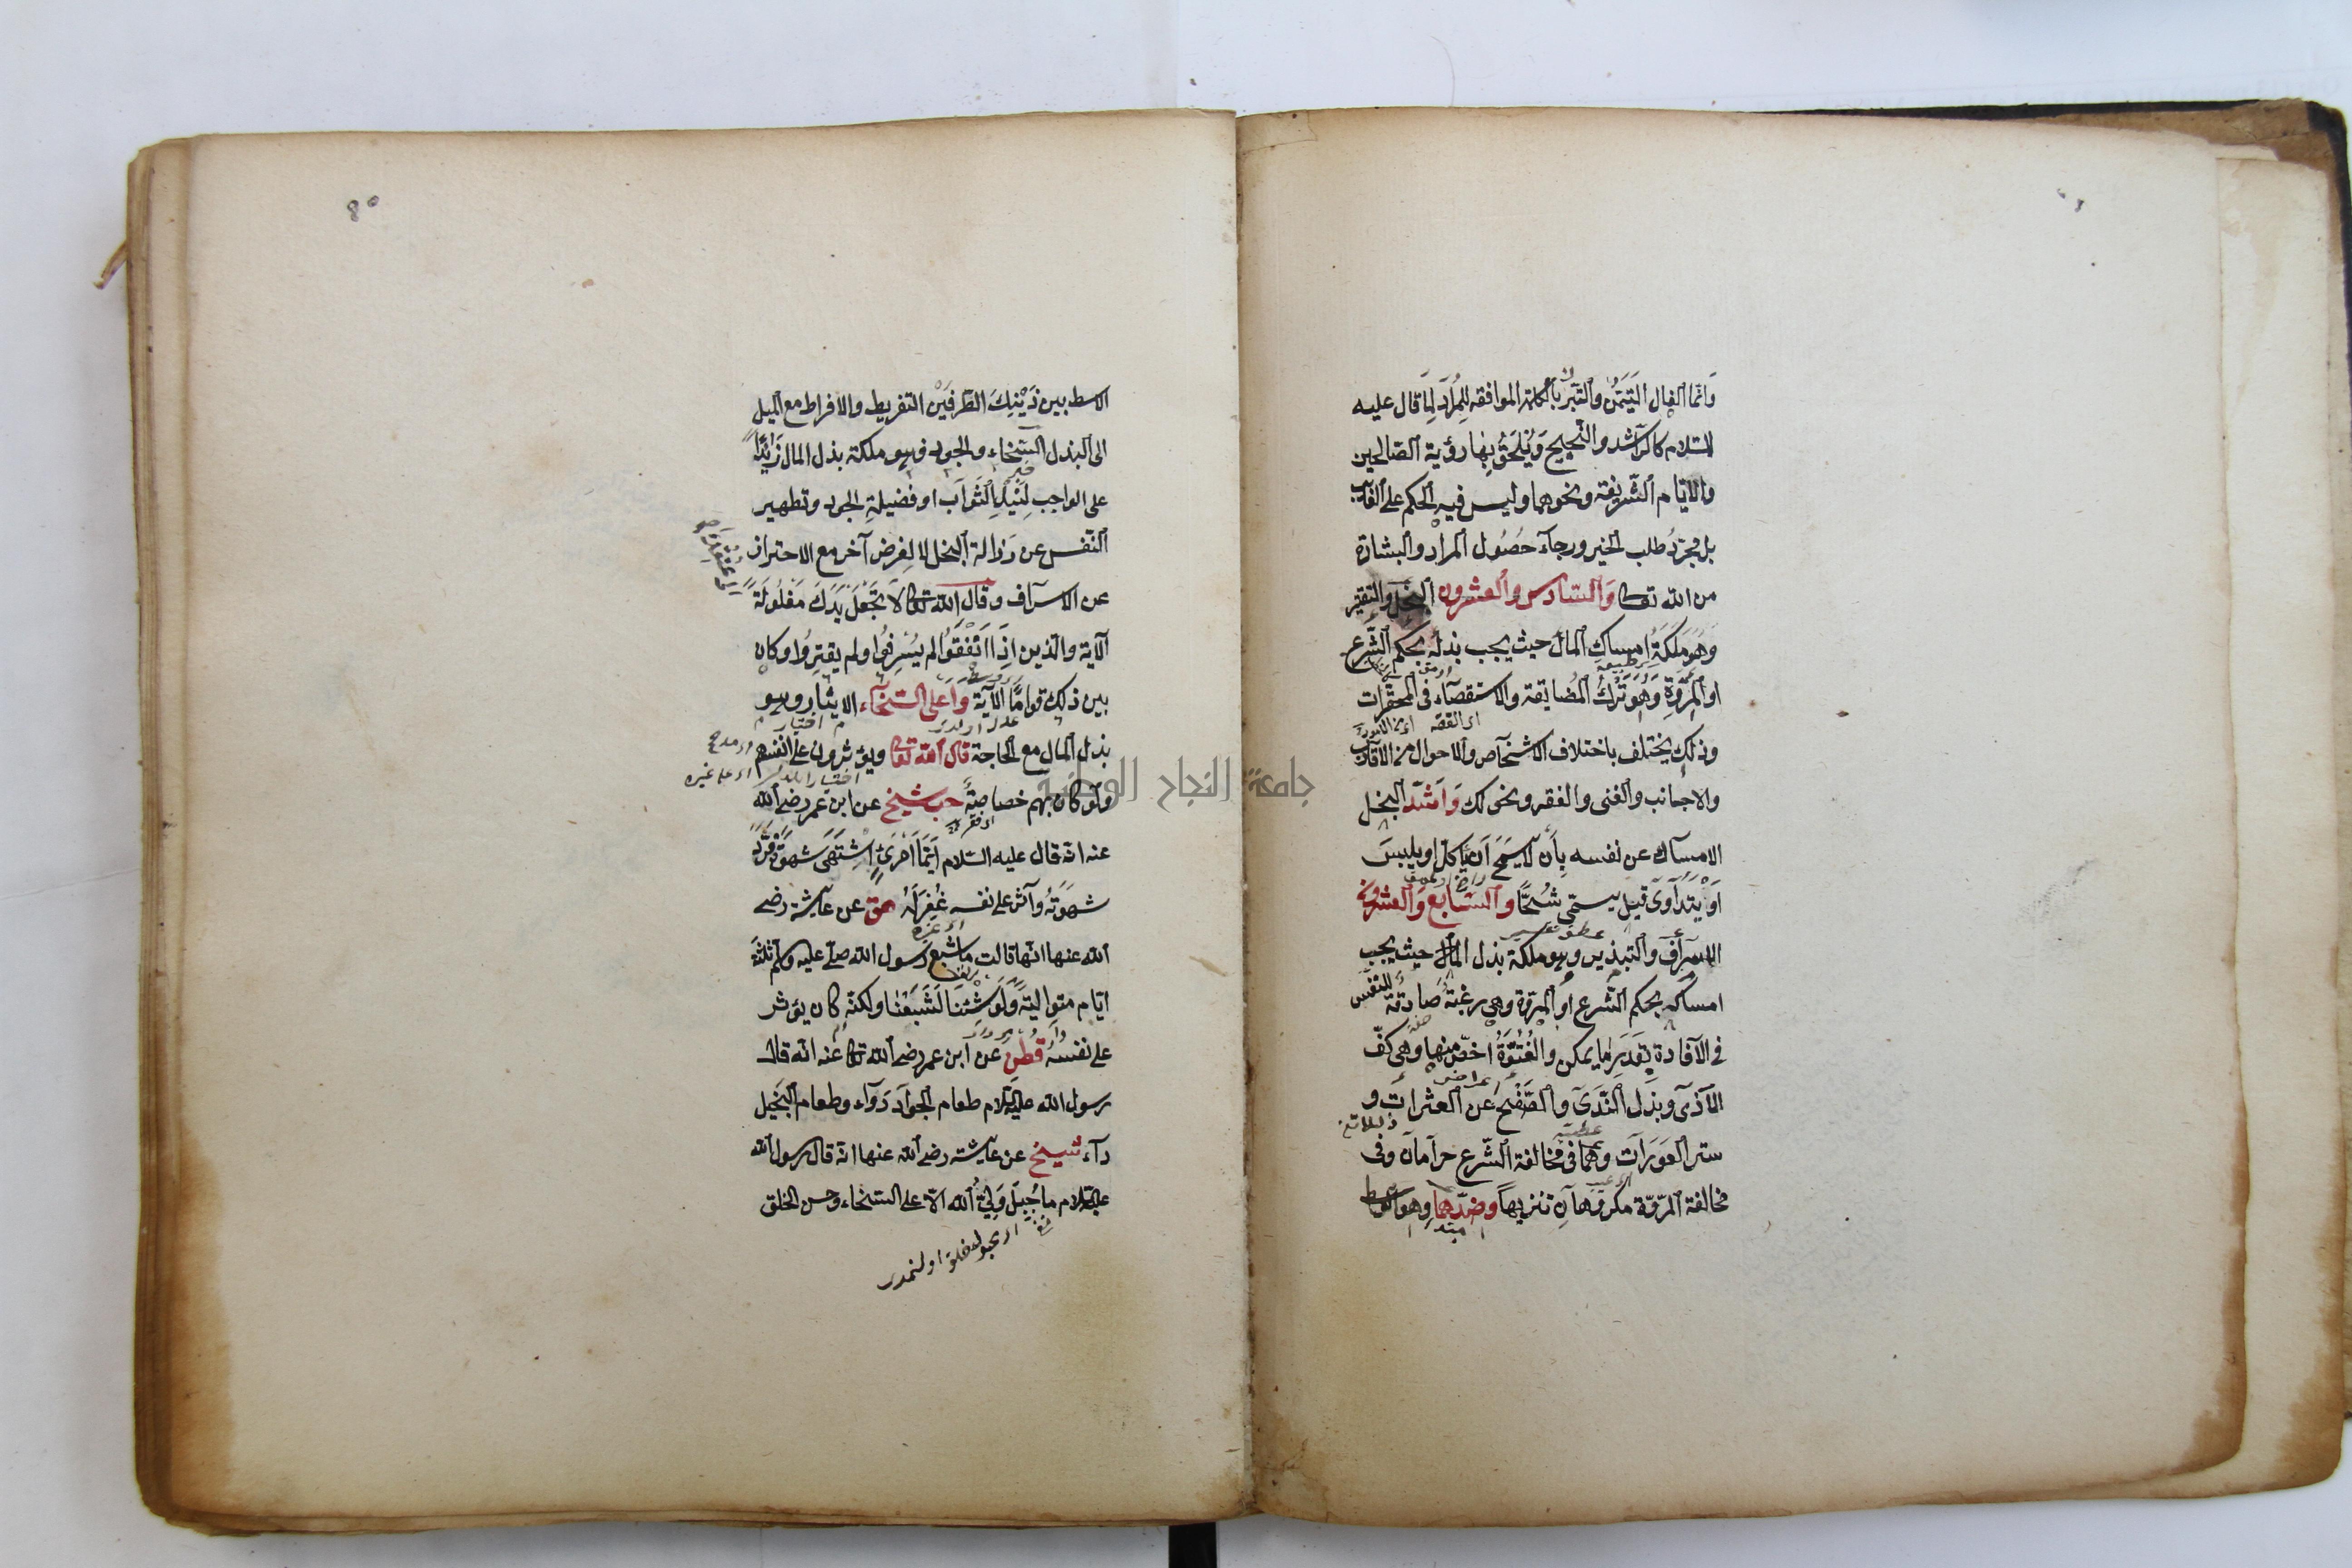 وَانّما الفال التَيَمّن والتبرك بالكلمة الموافقه لِلمُراد لِمَا قال عليه
السّلام كالرّاشد والنّجيح وَيُلحَقُ بِها رؤية الصّالحين
والايّام الشّريفة ونحوهما وليس فيه الحكم على الغائب
بل مجرّدُ طلب الخير ورجاء حُصُول المراد والبشارة
من الله تعالى وَالسّادس والعشرون البخل والتقتير
وَهُوَ مَلَكَةُ اِمساك المال حيث يجب بذله بحكم الشّرع
او المرُوّة وَهُوَ تَرْكُ المُضايقة والاستقصاء فى المحقّرات
وذلك يختلف باختلاف الاشخاص والاحوال من الاقارب
والاجانب والغنى والفقر ونحو ذلك وَاَشدّ البخل
الامساك عن نفسه بِاَن لا يسمح اَن ياكل او يلبسَ
اَوْ يتَداوَى قيل يسمّى شُحًّا والسّابع والعشرون
الاسراف والتبذير وهو ملكة بذل المال حيث يجب
امساكه بحكم الشّرع او المروّة وهى رغبة صَادقة للنّفس
فى الافادة بِقَدرِ ما يمكن والفُتُوَّةُ اخصّ منها وهى كفّ
الاَذى وبذل النّدى والصّفْح عن العثرات و
ستر العَوَرَات وهما فى مخالفة الشّرع حرامان وفى
مخالفة المروّة مكروهان تنزيهًا وضدّهما وهو الوسط
مبتدا
٤٥
الاسط بين ذَيْنِكَ الطَّرفَيْن التفريط والافراط مع الميل
الى البذل السّخاء والجود فهو ملكة بذل المال زائدًا
على الواجب لِنَيْلِ الثّواب او فضيلةِ الجود وتطهير
النّفس عن رَذالة البخل لا لغرض آخر مع الاحتراز
عن الاسراف وقال الله تعالى لا تَجْعَل يَدَكَ مَغْلُولَةً
الآية والّذين اِذا اَنْفَقُوا لم يُسْرِفُوا ولم يقتِرُوا وكان
بين ذلك قوامًا الآية وَاَعلى السّخاء الايثار وهو
بذل المال مع الحاجة قال الله تعالى ويؤثرون على انفسهم
ولَو كان بهم خصاصةٌ حب شيخ عن ابن عمر رضى الله
عنه انّه قال عليه السّلام اَيّمَا امْرِئٍ اِشْتَهَى شهوَةً فَرَدَّ
شهوَتَهُ وآثر على نفسه غُفِرَ لَهُ هق عن عايشة رضى
الله عنها انّها قالت ما شبع رسول الله صلى عليه وسلم ثلثة
ايّام متوالية وَلَو شِئْنَا لَشَبَعْنا ولكنّه كان يؤثر
على نفسهِ قُطْن عن ابن عمر رضى الله تعالى عنه انّه قال
رسول الله عليه السلام طعام الجواد دَوَاء وطعام البَخيل
داء شيخ عن عايشة رضى الله عنها انّه قال رسول الله
عليه السلام ما جُبِلَ وَلِىُّ الله الاّ على السّخاء وحسن الخلق
جامعة النجاح الوطنية